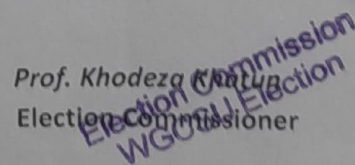 Prof. Khodeza Khatun
Election Commissioner
Election Commission
WGCGU Election